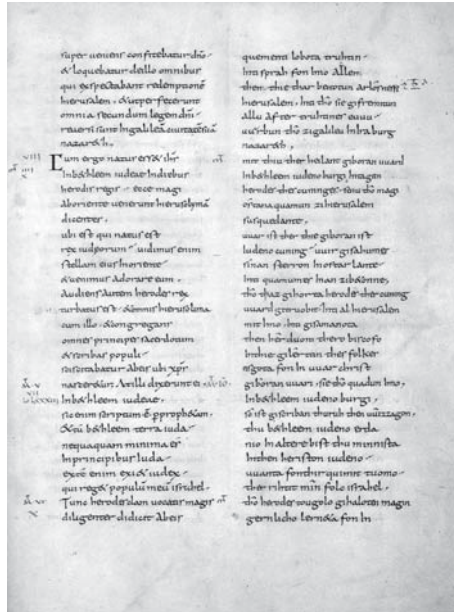 super veniens confitebatur dno
& loquebatur deillo omnibus
qui exspectabant redemptionē
hierusalem, & utper fecerunt
omnia secundum legem dni
reversi sunt Ingalileā civitatē suā
nazar&h.
VIII Cum ergo natus ess& ihs
Inb&hleem iudeae Indiebus
herodis regis ecce magi
aboriente venerunt hierusolymā
dicentes,
ubi est qui natus est
rex iudęorum vidimus enim
stellam eius Inoriente
& venimus adorare eum,
Audiens autem herodes rex
turbatus est & omnis hierusolima
cum illo, & congregans
omnes principes sacerdotum
& scribas populi
sciscitabatur Abeis ubi xps
nascer&ur, At illi dixerunt ei
Inb&hleem iudeae,
sic enim scriptum ē p proph&am,
& tu b&hleem terra iuda
nequaquam minima es
In principibus Iuda
exte enim exi& iudex
qui reg& populū meū israhel,
Tunc herodes clam vocatis magis
diligenter didicit Abeis
quementi lobota truhtin
Inti sprah fon Imo Allem
then thie thar beitotun arlosnessi
hierusalem, Inti thó sie gifremitun
allu After truhtines euuu
uurbun thó zigalileu InIra burg
nazar&h,
mit thiu ther heilant giboran uuard
Inb&hleem iudeno burgi Intagun
herodes thes cuninges senu thó magi
óstana quamun zi hierusalem
sus quedante,
uuar ist ther thie giboran ist
Iudeno cuning uuir gisahumes
sinan sterron Inostarlante
Inti quamumes Inan zib&onne,
thó thaz gihorta herodes ther cuning
uuard gitruobit Inti al hierusalem
mit Imo, Inti gisamanota
then hérduom thero biscofo
Inthie giléritan thes folkes
eiscota fon In uuar christ
giboran uuari, sie thó quadun Imo,
Inb&hleem iudeno burgi
só ist giscriban thuruh then uuizzagon,
thu b&hleem iudeno erda
nio In altere bist thu minnista
Inthen heriston iudeno
uuanta fonthir quimit tuomo
ther rihtit min folc israhel,
thó herodes tougolo gihaloten magin
gernlicho lern&a fon In